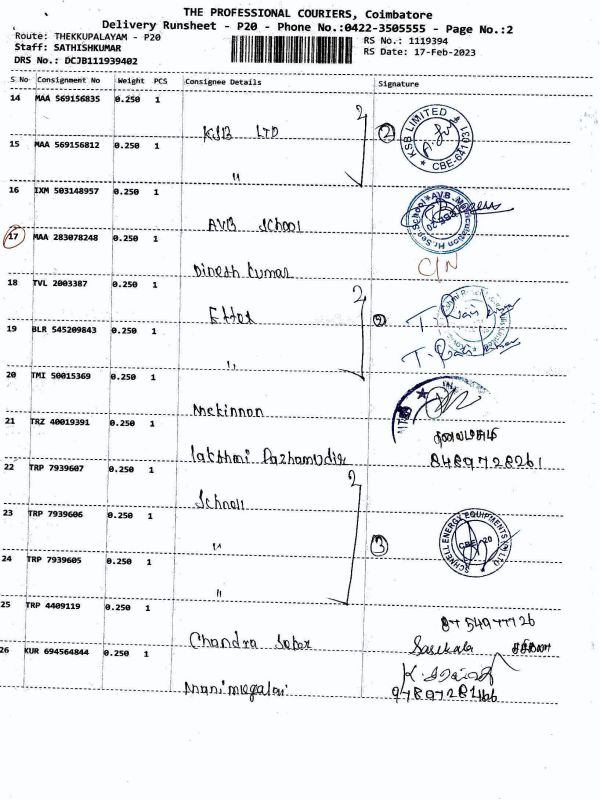 THE PROFESSIONAL COURIERS, Coimbatore
Delivery Runsheet - P20 - Phone No.:0422-3505555 - Page No.:2
Route: THEKKUPALAYAM - P20
RS No.: 1119394
Staff: SATHISHKUMAR
RS Date: 17-Feb-2023
DRS No.: DCJB111939402
S No Consignment No Weight PCS Consignee Details Signature
14 MAA 569156835 0.250 1
KSB LTD
2
KSB LIMITED
CBE-641031
15 MAA 569156812 0.250 1
"
16 IXM 503148957 0.250 1
AVB School
17 MAA 283078248 0.250 1
Dinesh kumar
C/N
18 TVL 2003387 0.250 1
2
19 BLR 545209843 0.250 1
"
20 TMI 50015369 0.250 1
Mekinnon
21 TRZ 40019391 0.250 1
lakshmi Pazhamudir
8489728261
22 TRP 7939607 0.250 1
Schnell
23 TRP 7939606 0.250 1
"
3
SCHNELL ENERGY EQUIPMENTS (P) LTD
24 TRP 7939605 0.250 1
"
25 TRP 4409119 0.250 1
Chandra
Sasikala
26 KUR 694564844 0.250 1
Manimegalai